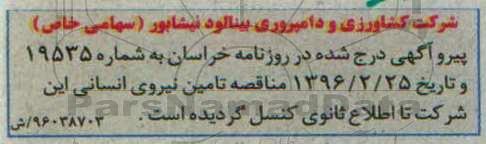 شرکت کشاورزی و دامپروری بینالود نیشابور (سهامی خاص)
پیرو آگهی درج شده در روزنامه خراسان به شماره ۱۹۵۳۵
و تاریخ ۱۳۹۶/۲/۲۵ مناقصه تامین نیروی انسانی این
شرکت تا اطلاع ثانوی کنسل گردیده است.
۹۶۰۳۸۷۰۳/ش
ParsNamadData